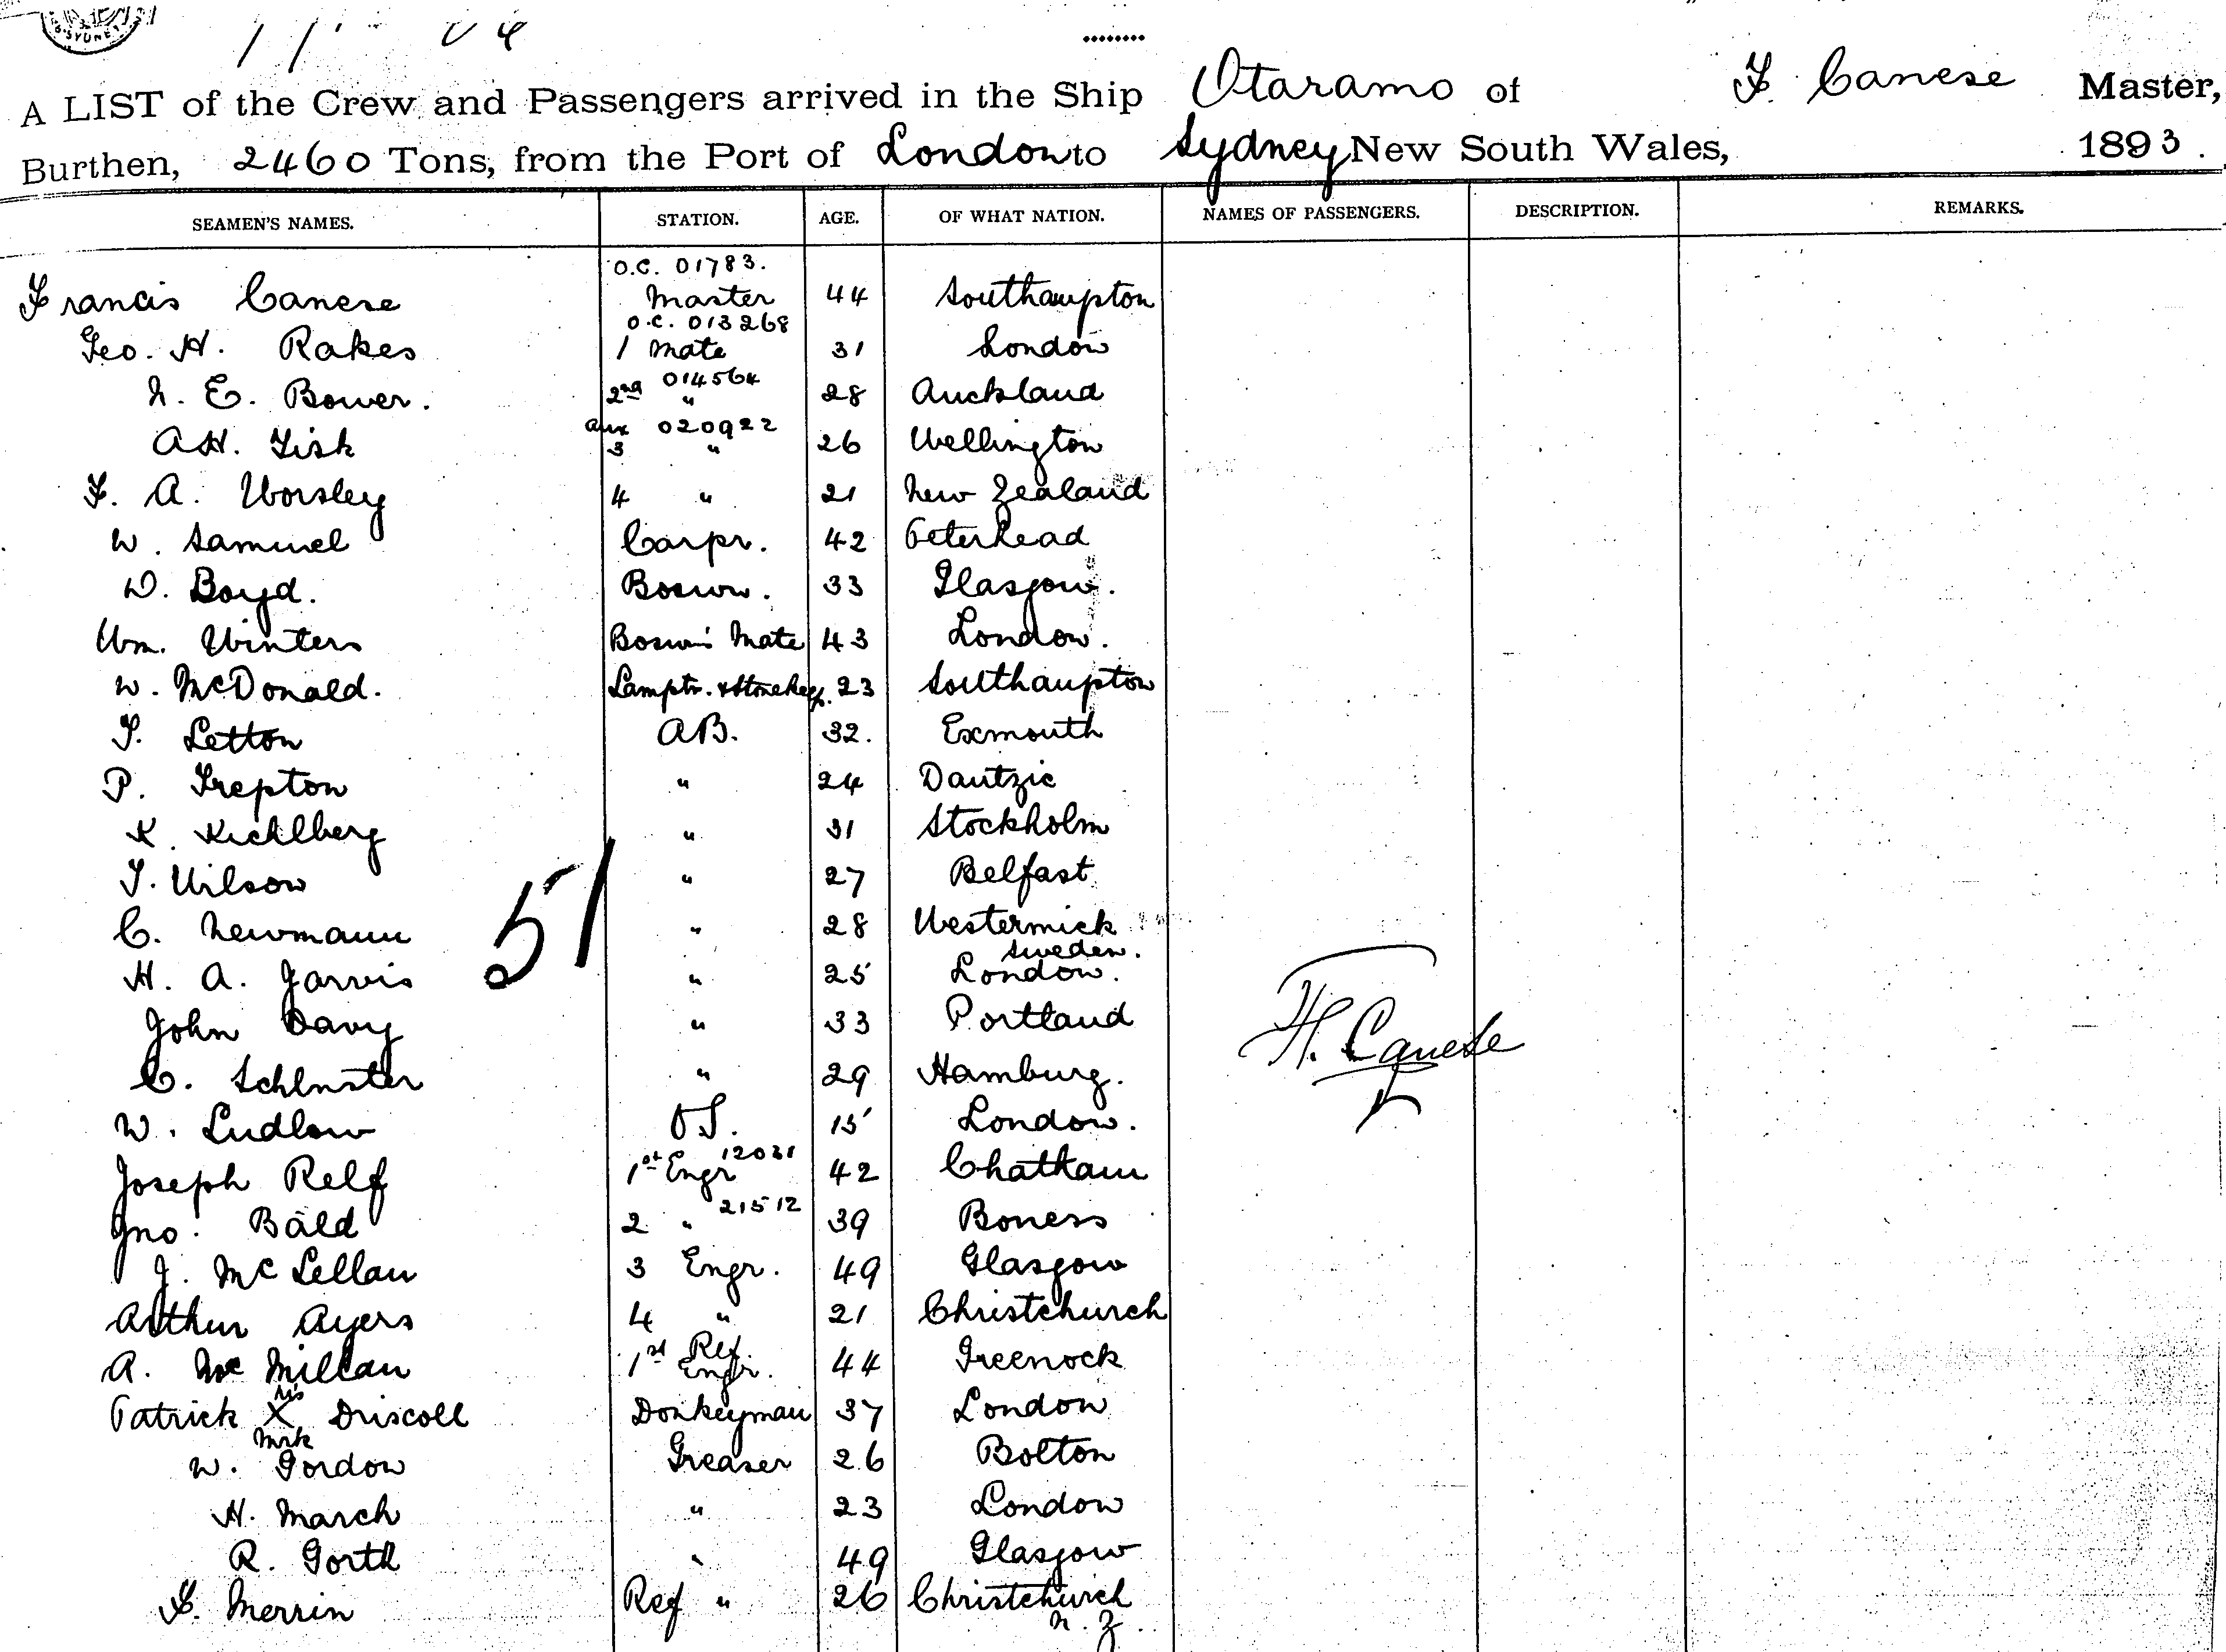 SYDNEY
A LIST of the Crew and Passengers arrived in the Ship Otaramo of F. Canese Master,
Burthen, 2460 Tons, from the Port of London to Sydney New South Wales, 1893.
SEAMEN'S NAMES. STATION. AGE. OF WHAT NATION. NAMES OF PASSENGERS. DESCRIPTION. REMARKS.
O.C. 01783.
Francis Canese Master 44 Southampton
O.C. 013268
Geo. H. Rakes 1 Mate 31 London
014564
E. Bower. 2nd " 28 Auckland
020922
A.H. Fisk 3 " 26 Wellington
F. A. Worsley 4 " 21 New Zealand
W. Samuel Carpr. 42 Peterhead
D. Boyd. Bosun. 33 Glasgow.
Wm. Winters Bosun's Mate 43 London.
W. McDonald. Lamptr. & Storekepr. 23 Southampton
Letton AB. 32. Exmouth
P. Trepton " 24 Dantzic
K. " 31 Stockholm
Wilson " 27 Belfast
C. Newmann " 28 Westermick
Sweden.
51
H. A. Jarvis " 25 London.
John Davy " 33 Portland
H. Canese
C. Schluster " 29 Hamburg.
W. Ludlow OS. 15 London.
12031
Joseph Relf 1st Engr 42 Chatham
21512
Jno. Bald 2 " 39 Boness
J. McLellan 3 Engr. 49 Glasgow
Arthur Ayers 4 " 21 Christchurch
A. McMillan 1st Ref. Engr. 44 Greenock
his
Patrick X Driscoll Donkeyman 37 London
Mrk
W. Gordon Greaser 26 Bolton
H. March " 23 London
R. Gorth " 49 Glasgow
F. Merrin Ref " 26 Christchurch
N.Z.